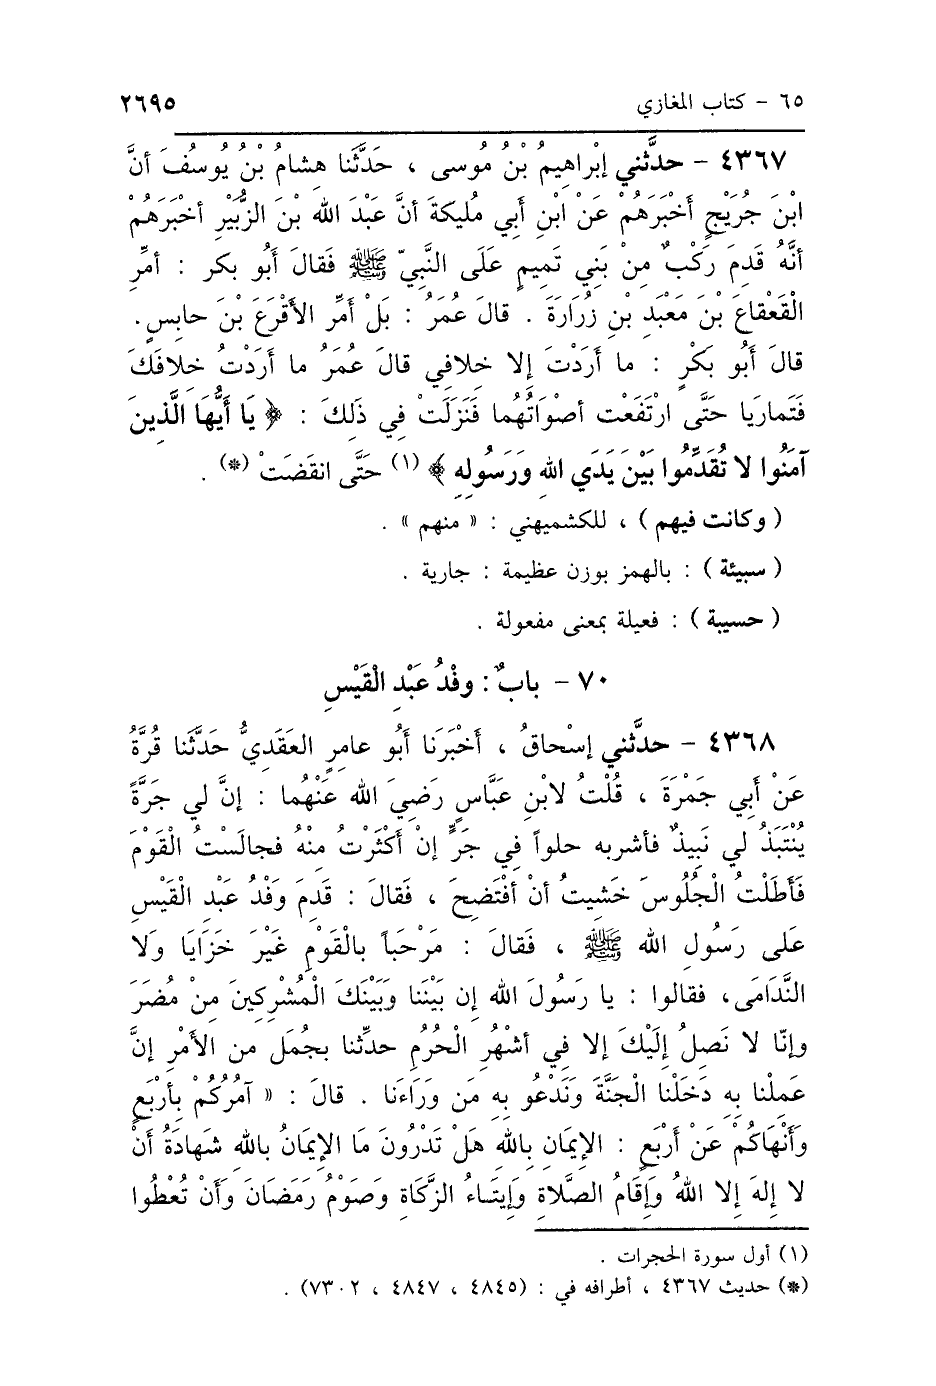 ٦٥ - كتاب المغازي ٢٦٩٥
٤٣٦٧ - حدَّثني إبْراهِيمُ بْنُ مُوسى ، حَدَّثَنا هِشامُ بْنُ يُوسُفَ أنَّ
ابْنَ جُرَيْجٍ أَخْبَرَهُمْ عَنْ ابْنِ أبي مُليكةَ أنَّ عَبْدَ الله بْنَ الزُّبَيْرِ أخْبَرَهُمْ
أنَّهُ قَدِمَ رَكْبٌ مِنْ بَنِي تَمِيمٍ عَلَى النَّبِيّ ﷺ فَقالَ أَبُو بكر : أمرِّ
الْقَعْقاعَ بْنَ مَعْبَدِ بْنِ زُرَارَةَ . قالَ عُمَرُ : بَلْ أَمِّرِ الأَقْرَعَ بْنَ حابِسٍ.
قالَ أَبُو بَكْرٍ : ما أَرَدْتَ إلا خلافِي قالَ عُمَرُ ما أرَدْتُ خلافَكَ
فَتَماريَا حتَّى ارْتَفَعْت أصْوَاتُهُما فَنَزَلَتْ فِي ذَلِكَ : ﴿ يَا أَيُّهَا الَّذِينَ
آمَنُوا لا تُقَدِّمُوا بَيْنَ يَدَي اللهِ وَرَسُولِهِ ﴾ (١) حَتَّى انقَضَتْ (*) .
( وكانت فيهم ) ، للكشميهني : « منهم » .
( سبيئة ) : بالهمز بوزن عظيمة : جارية .
( حسيبة ) : فعيلة بمعنى مفعولة .
٧٠ - بابٌ : وفْدُ عَبْدِ الْقَيْسِ
٤٣٦٨ - حدَّثني إسْحاقُ ، أَخْبَرَنَا أَبُو عامِرٍ العَقَدِيُّ حَدَّثَنا قُرَّةُ
عَنْ أبي جَمْرَةَ ، قُلْتُ لابْنِ عَبَّاسٍ رَضِيَ الله عَنْهُما : إنَّ لي جَرَّةً
يُنْتَبَذُ لي نَبِيذٌ فأشربه حلواً فِي جَرٍّ إنْ أَكْثَرْتُ مِنْهُ فجالَسْتُ الْقَوْمَ
فَأَطَلْتُ الْجُلُوسَ خَشِيتُ أنْ أفْتَضِحَ ، فَقالَ : قَدِمَ وَفْدُ عَبْدِ الْقَيْسِ
عَلى رَسُولِ الله ﷺ ، فَقالَ : مَرْحَباً بالْقَوْمِ غَيْرَ خَزَايَا وَلا
النَّدَامَى، فقالوا : يا رَسُولَ الله إن بَيْنَنا وَبَيْنَكَ الْمُشْرِكِينَ مِنْ مُضَرَ
وإنّا لا نَصِلُ إلَيْكَ إلا فِي أشْهُرِ الْحُرُمِ حدِّثنا بجُمَلٍ من الأمْرِ إنَّ
عَمِلْنا بِهِ دَخَلْنا الْجَنَّةَ وَنَدْعُو بِهِ مَن وَرَاءَنا . قالَ : « آمُرُكُمْ بِأرْبَعٍ
وَأَنْهَاكُمْ عَنْ أرْبَعٍ : الإيمَانِ بِاللهِ هَلْ تَدْرُونَ مَا الإيمَانُ بِاللهِ شَهادَةُ أنْ
لا إلهَ إلا اللهُ وَإقامُ الصَّلاةِ وَإيتَاءُ الزَّكَاةِ وَصَوْمُ رَمَضَانَ وَأنْ تُعْطُوا
(١) أول سورة الحجرات .
(*) حديث ٤٣٦٧ ، أطرافه في : (٤٨٤٥ ، ٤٨٤٧ ، ٧٣٠٢) .